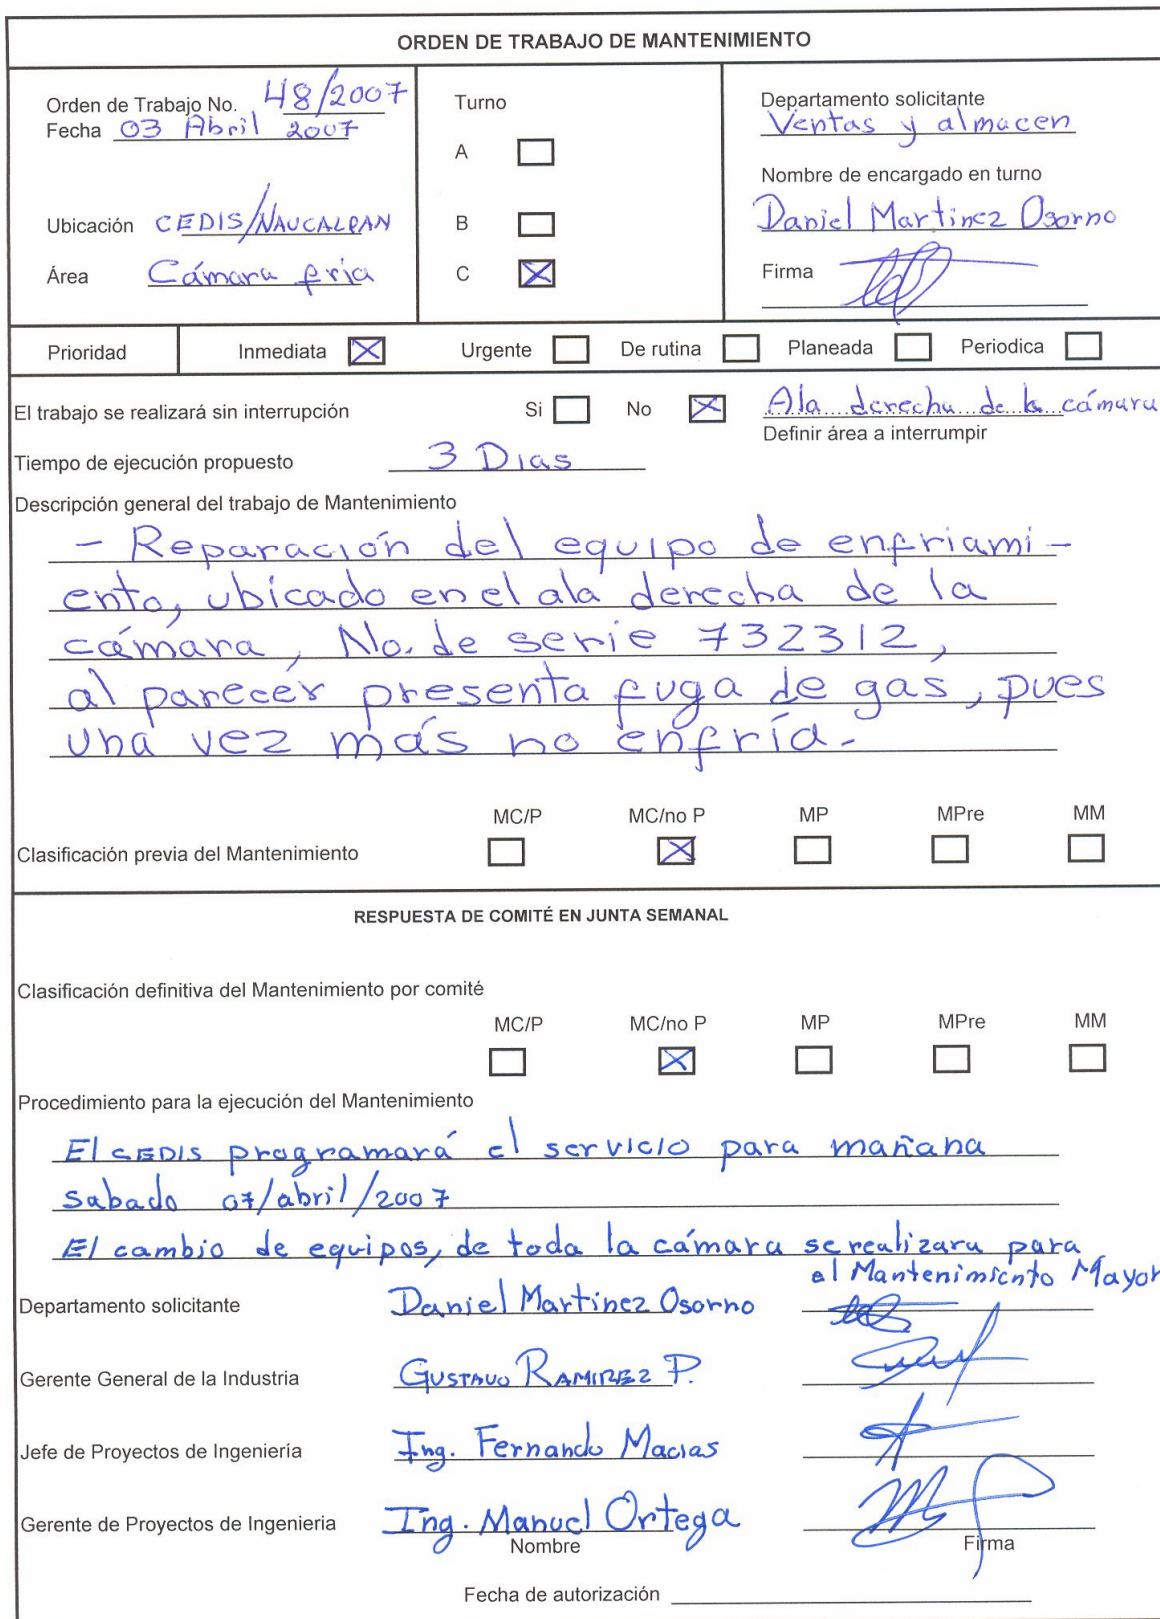 ORDEN DE TRABAJO DE MANTENIMIENTO
Orden de Trabajo No. 48/2007
Fecha 03 Abril 2007
Ubicación CEDIS/NAUCALPAN
Área Cámara fria
Turno
A
B
C
Departamento solicitante
Ventas y almacen
Nombre de encargado en turno
Daniel Martinez Osorno
Firma
Prioridad Inmediata Urgente De rutina Planeada Periodica
El trabajo se realizará sin interrupción Si No Ala derecha de la cámara
Definir área a interrumpir
Tiempo de ejecución propuesto 3 Dias
Descripción general del trabajo de Mantenimiento
- Reparación del equipo de enfriami-
ento, ubicado en el ala derecha de la
cámara, No. de serie 732312,
al parecer presenta fuga de gas, pues
una vez más no enfría.
MC/P MC/no P MP MPre MM
Clasificación previa del Mantenimiento
RESPUESTA DE COMITÉ EN JUNTA SEMANAL
Clasificación definitiva del Mantenimiento por comité
MC/P MC/no P MP MPre MM
Procedimiento para la ejecución del Mantenimiento
El CEDIS programará el servicio para mañana
sabado 07/abril/2007
El cambio de equipos, de toda la cámara se realizara para
el Mantenimiento Mayor
Departamento solicitante Daniel Martinez Osorno
Gerente General de la Industria GUSTAVO RAMIREZ P.
Jefe de Proyectos de Ingeniería Ing. Fernando Macias
Gerente de Proyectos de Ingenieria Ing. Manuel Ortega
Nombre Firma
Fecha de autorización